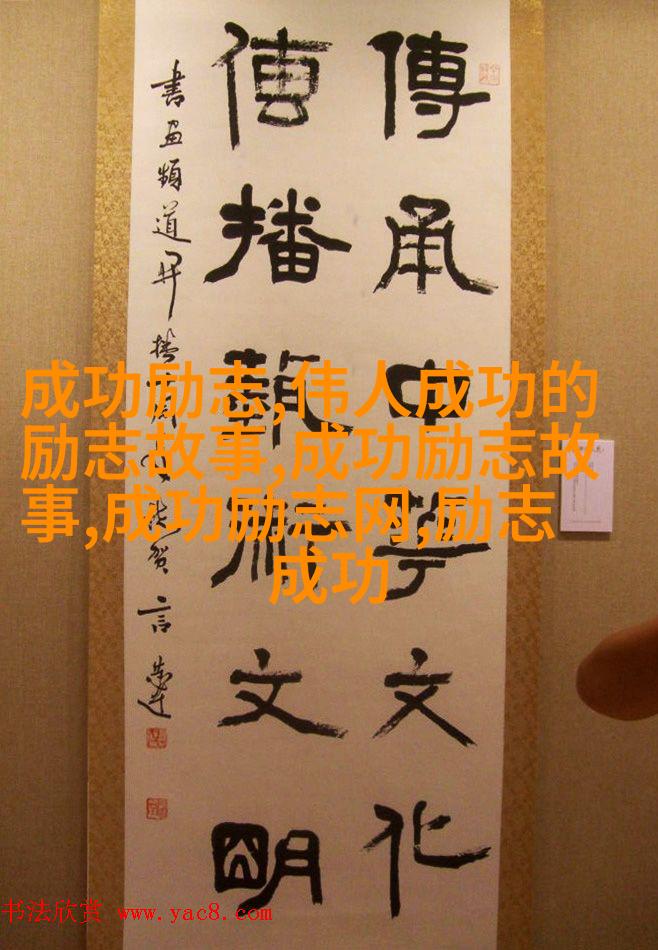 傳承中華文化
傳播藝術文明
書画頻道开播
賀言恭达
成功励志,伟人成功的
励志故事,成功励志故
事,成功励志网,励志
成功
书法欣赏 www.yac8.com